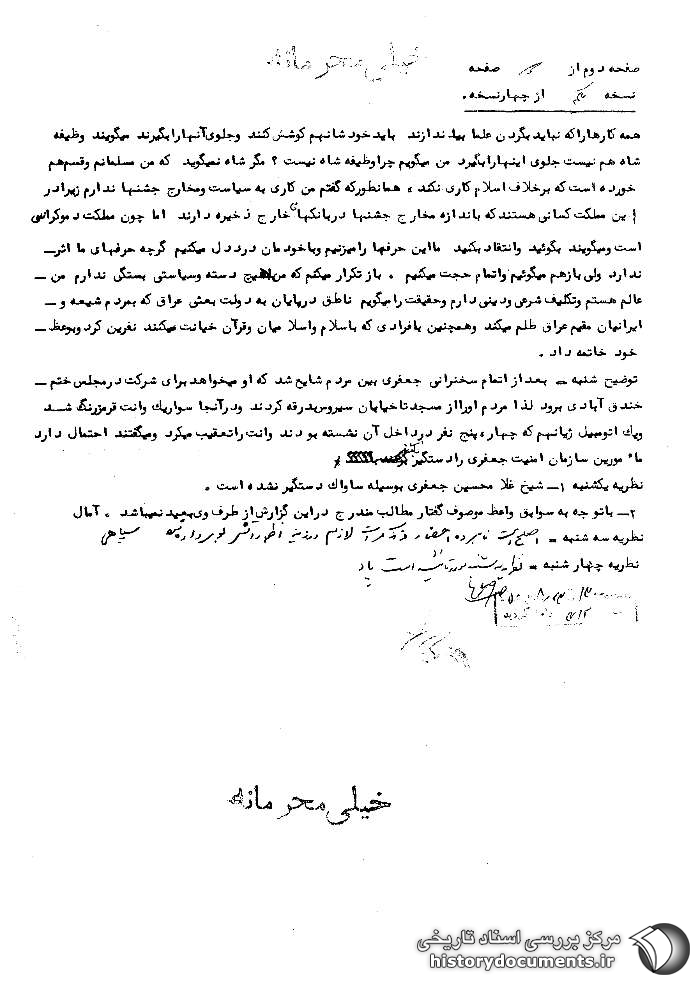 خیلی محرمانه
صفحه دوم از صفحه
نسخه یکم از چهار نسخه.
همه کارها را که نباید بگردن علما بیند ازند باید خود شانهم کوشش کنند وجلوی آنها را بگیرند میگویند وظیفه
شاه هم نیست جلوی اینها را بگیرد من میگویم چرا وظیفه شاه نیست ؟ مگر شاه نمیگوید که من مسلمانم وقسم هم
خورده است که برخلاف اسلام کاری نکند ، همانطورکه گفتم من کاری به سیاست ومخارج جشنها ندارم زیرا در
این مملکت کسانی هستند که باندازه مخارج جشنها دربانکهای خارج ذخیره دارند اما چون مملکت دموکراسی
است ومیگویند بگوئید وانتقاد بکنید ما این حرفها را میزنیم وباخودمان درددل میکنیم گرچه حرفهای ما اثری
ندارد ولی بازهم میگوئیم واتمام حجت میکنیم . باز تکرار میکنم که من هیچ دسته وسیاستی بستگی ندارم من
عالم هستم وتکلیف شرعی ودینی دارم وحقیقت را میگویم ناطق درپایان به دولت بعثی عراق که بمردم شیعه و
ایرانیان مقیم عراق ظلم میکند وهمچنین بافرادی که باسلام واسلامیان وقرآن خیانت میکنند نفرین کرد وبوعظ
خود خاتمه داد .
توضیح شنبه – بعد از اتمام سخنرانی جعفری بین مردم شایع شد که او میخواهد برای شرکت درمجلس ختم
خندق آبادی برود لذا مردم اورا از مسجد تاخیابان سیروس بدرقه کردند ودرآنجا سواریک وانت قرمزرنگ شد
ویک اتومبیل ژیانهم که چهار، پنج نفر درداخل آن نشسته بودند وانت راتعقیب میکرد ومیگفتند احتمال دارد
مأمورین سازمان امنیت جعفری را دستگیر کنند
نظریه یکشنبه ۱– شیخ غلامحسین جعفری بوسیله ساواک دستگیر نشده است .
۲– باتوجه به سوابق واعظ موصوف گفتار مطالب مندرج دراین گزارش از طرف وی بعید نمیباشد . آمال
نظریه سه شنبه – اصلح است نامبرده احضار و تذکرات لازم
نظریه چهارشنبه – نظریه سه شنبه مورد تائید است
خیلی محرمانه
مرکز بررسی اسناد تاریخی
historydocuments.ir